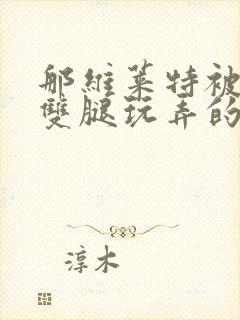 那維萊特被
雙腿玩弄的
淳木